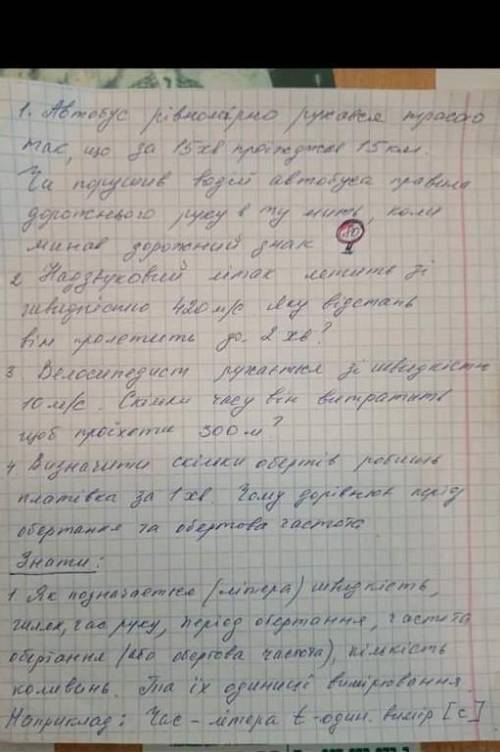 1. Автобус рівномірно рухався трасою
так, що за 15хв проїжджав 15км.
Чи порушив водій автобуса правила
дорожнього руху в ту мить, коли
минав дорожній знак
2 Надзвуковий літак летить зі
швидкістю 420м/с Яку відстань
він пролетить до 2хв?
3 Велосипедист рухається зі швидкістю
10м/с. Скільки часу він витратить
щоб проїхати 300м?
4 Визначити скільки обертів робить
платівка за 1хв Чому дорівнює період
обертання та обертова частота
Знати:
1 Як позначається (літера) швидкість,
шлях, час руху, період обертання, частота
обертання (або обертова частота), кількість
коливань. Та їх одиниці вимірювання
Наприклад: Час - літера t - один. вимір [с]